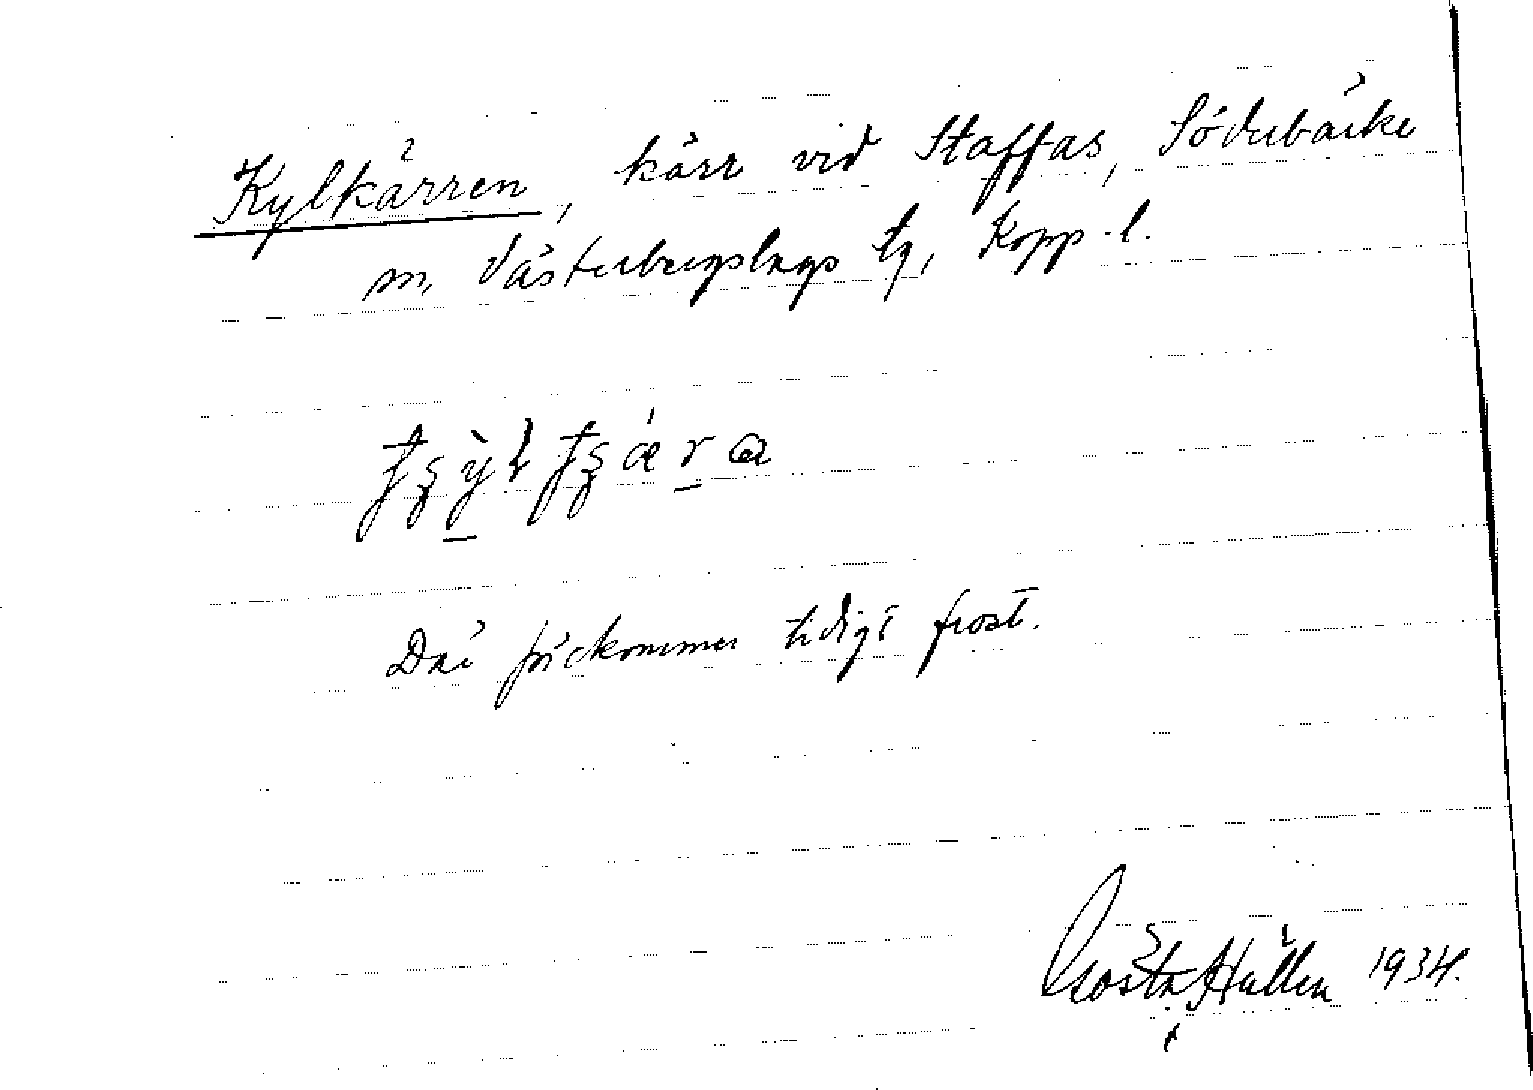 Kylkärren, kärr vid Staffas, Söderbärke
sn, Västerbergslags tg, Kopp. l.
Där förekommer tidigt frost.
Gösta Hallén 1934.